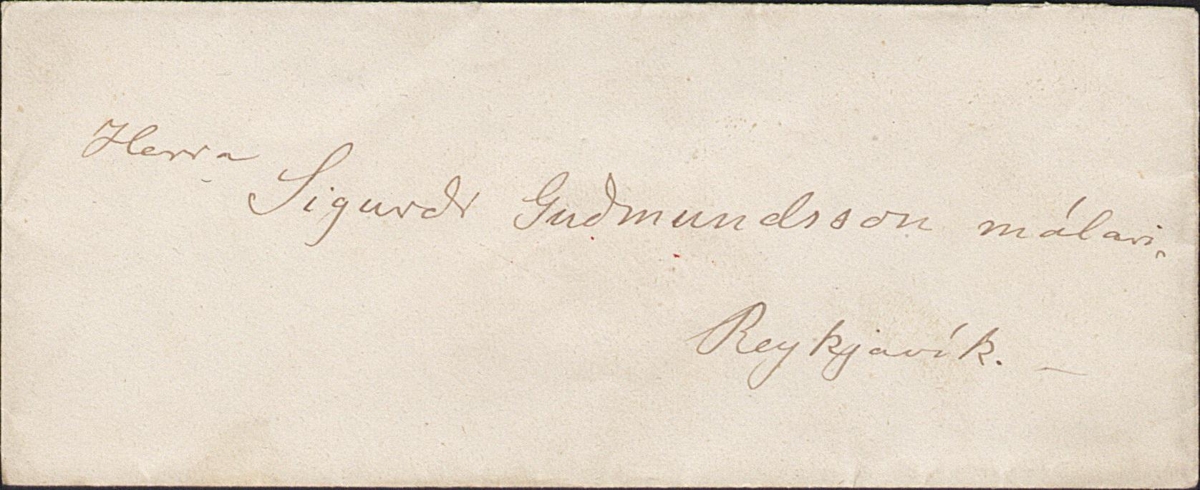 Herra
Sigurðr Guðmundsson málari,
Reykjavík. —